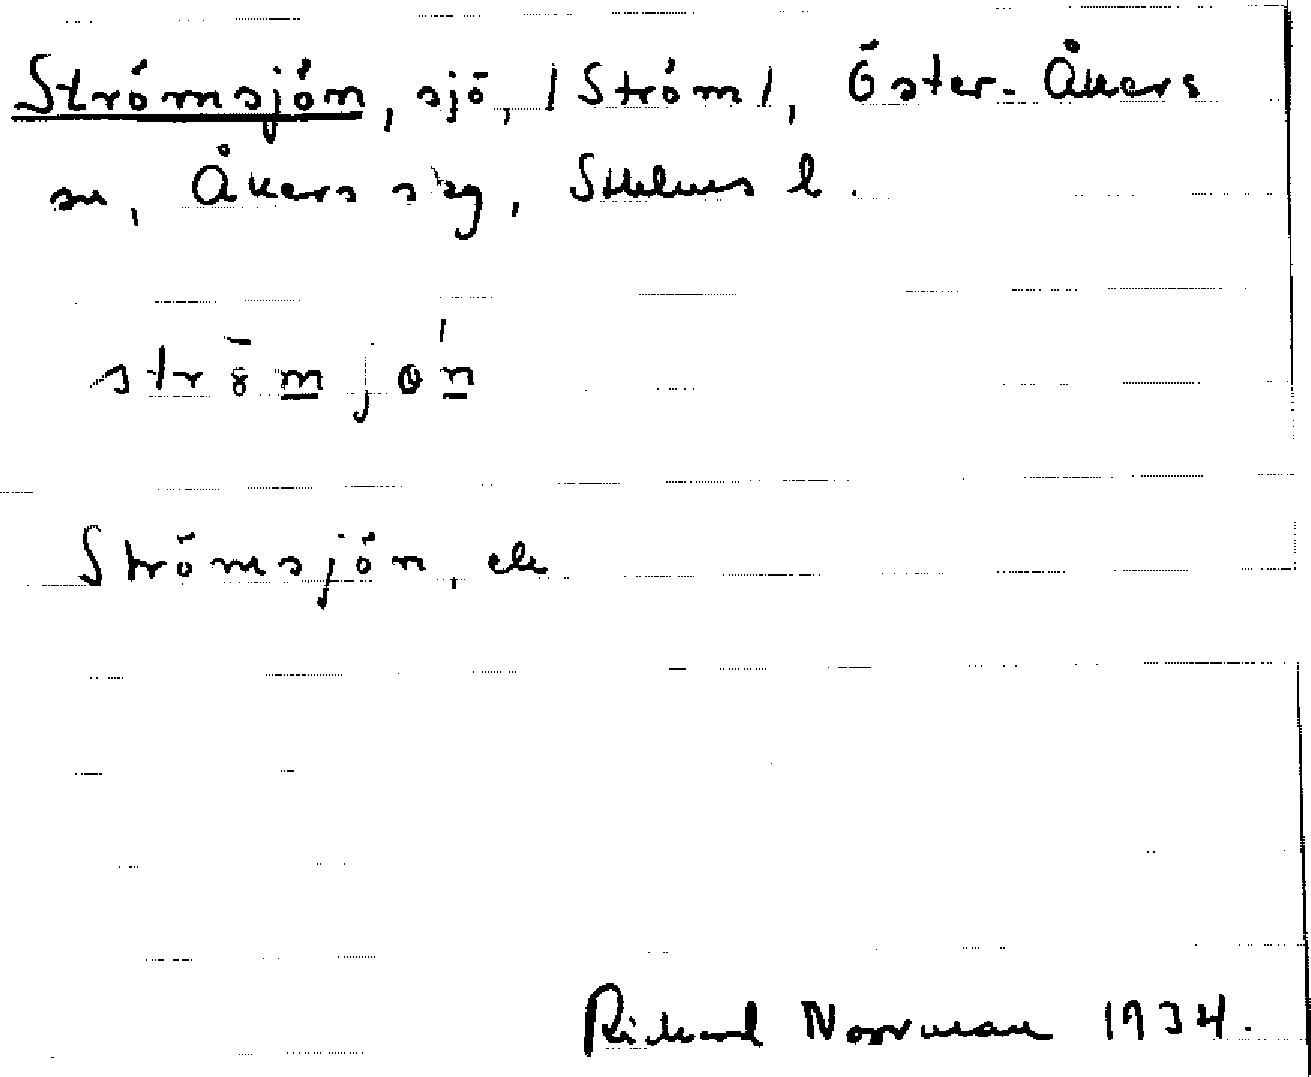 Strömsjön, sjö, /Ström/, Öster-Åkers
sn, Åkers skg, Sthlms l.
strömjon
Strömsjön, ek
Rickard Norrman 1934.